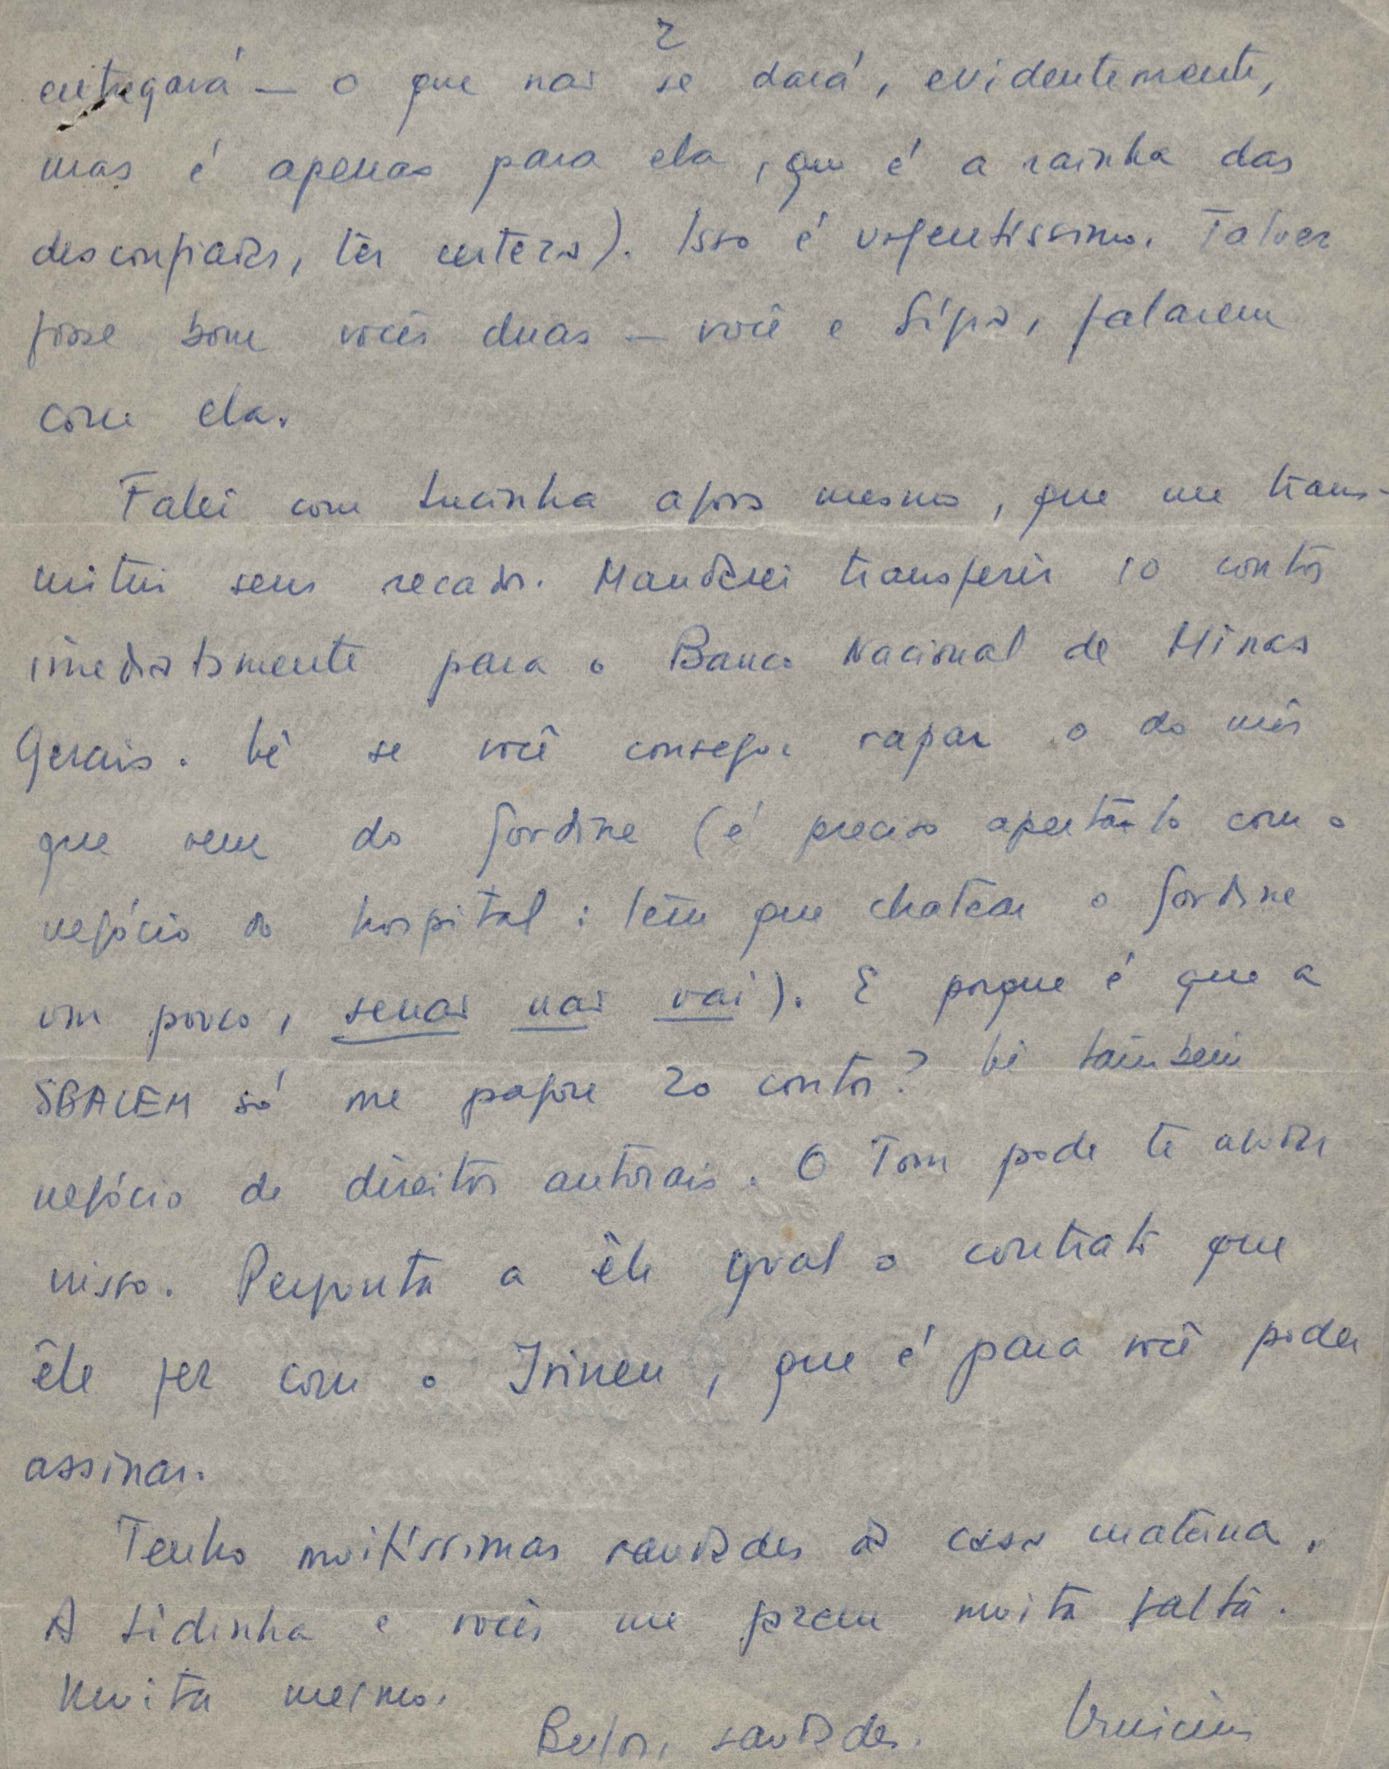 2
entregará — o que não se dará, evidentemente,
mas é apenas para ela, que é a rainha das
desconfiadas, ter certeza). Isso é urgentíssimo. Talvez
fosse bom vocês duas — você e falarem
com ela.
Falei com Lucinha agora mesmo, que me trans-
mitiu seus recados. Mandarei transferir 10 contos
imediatamente para o Banco Nacional de Minas
Gerais. Vê se você consegue rapar o do mês
que vem do Jordine (é preciso apertá-lo com o
negócio do hospital: tem que chatear o Jordine
um pouco, senão não vai). E porque é que a
SBACEM só me pagou 20 contos? Vê também
negócio de direitos autorais. O Tom pode te ajudar
nisso. Pergunta a êle qual o contrato que
êle fez com o Irineu, que é para você poder
assinar.
Tenho muitíssimas saudades da casa materna.
A Lidinha e vocês me fazem muita falta.
Muita mesmo.
saudades. Vinicius